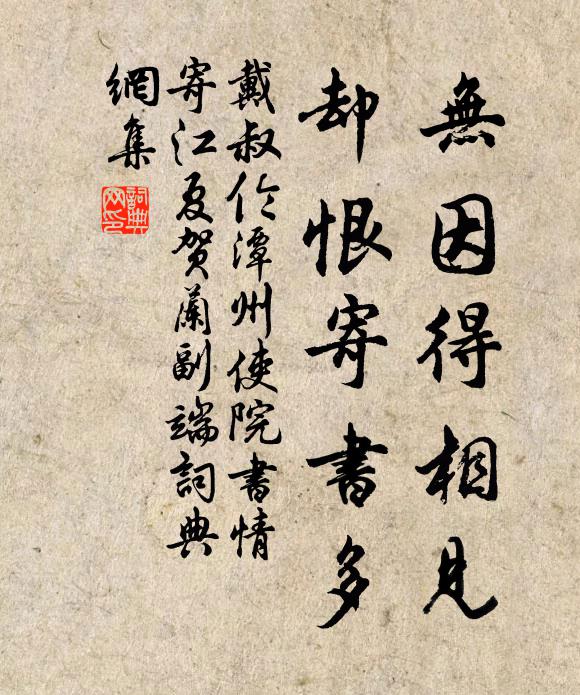 無因得相見
却恨寄書多
戴叔伦潭州使院書情
寄江夏贺蘭副端詞典
網集
詞典
网印